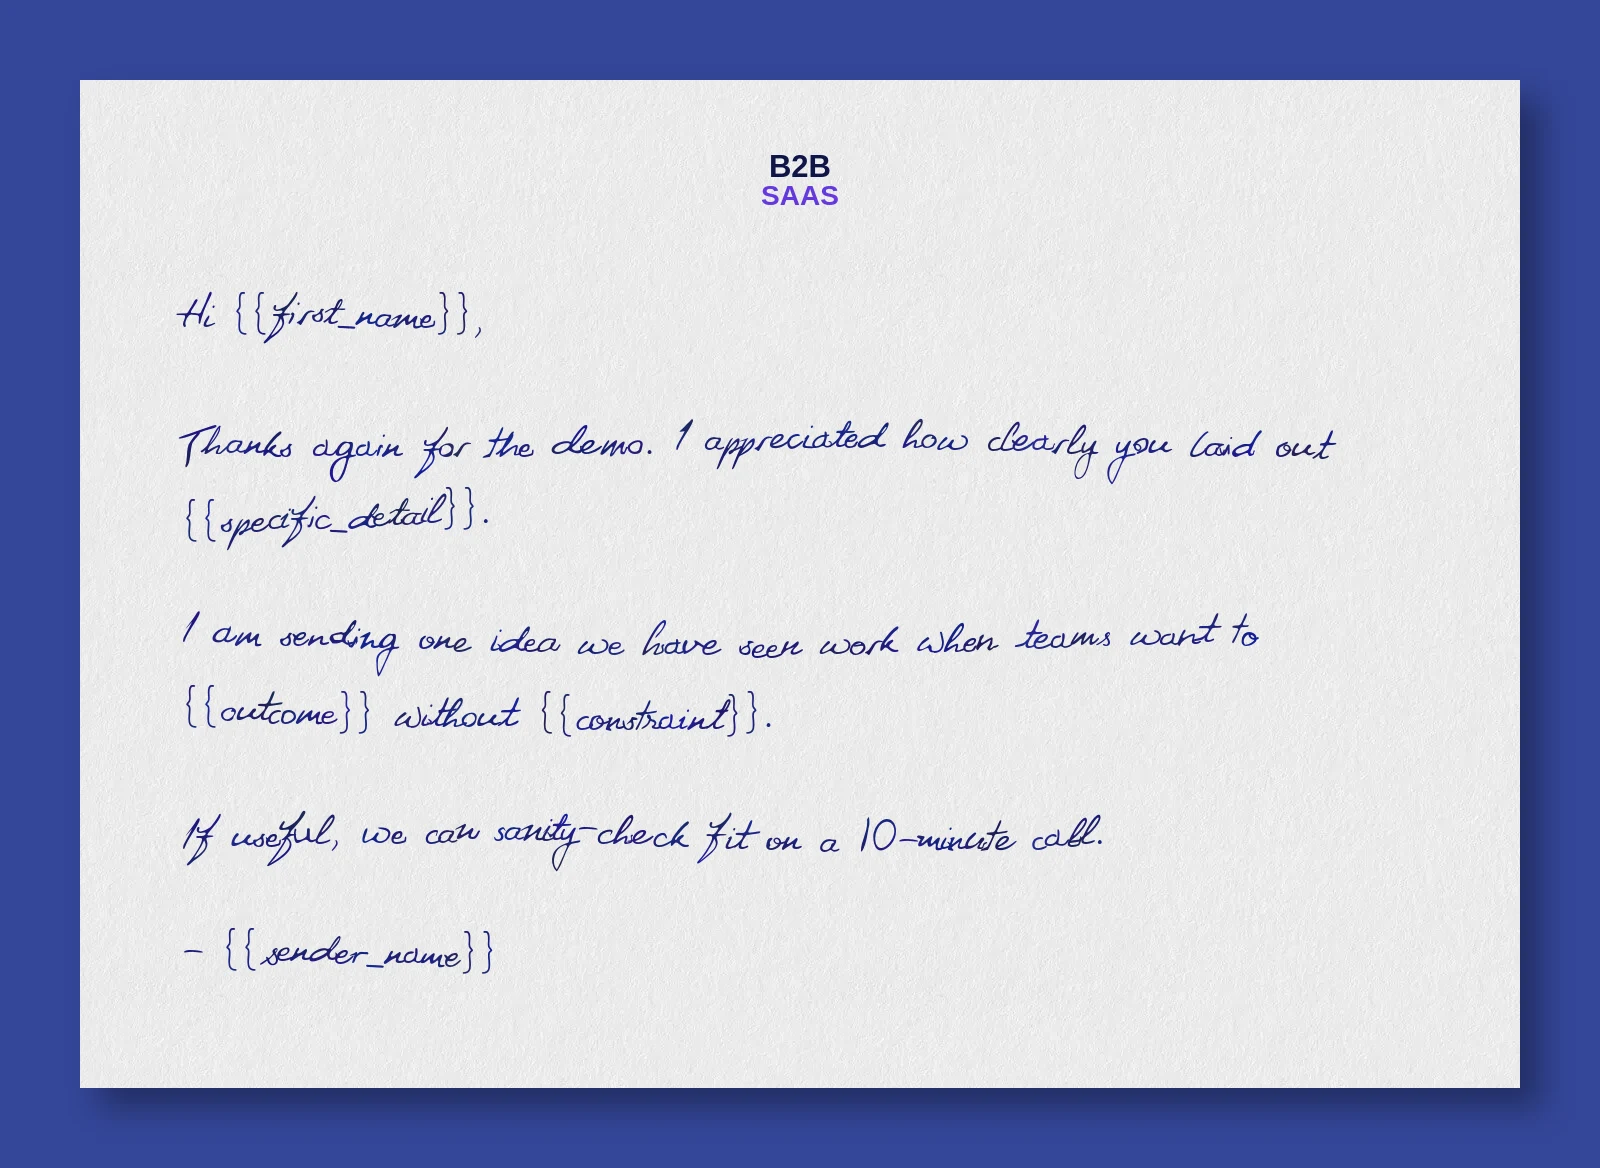 B2B
SAAS
Hi {{first_name}},
Thanks again for the demo. I appreciated how clearly you laid out
{{specific_detail}}.
I am sending one idea we have seen work when teams want to
{{outcome}} without {{constraint}}.
If useful, we can sanity-check fit on a 10-minute call.
- {{sender_name}}